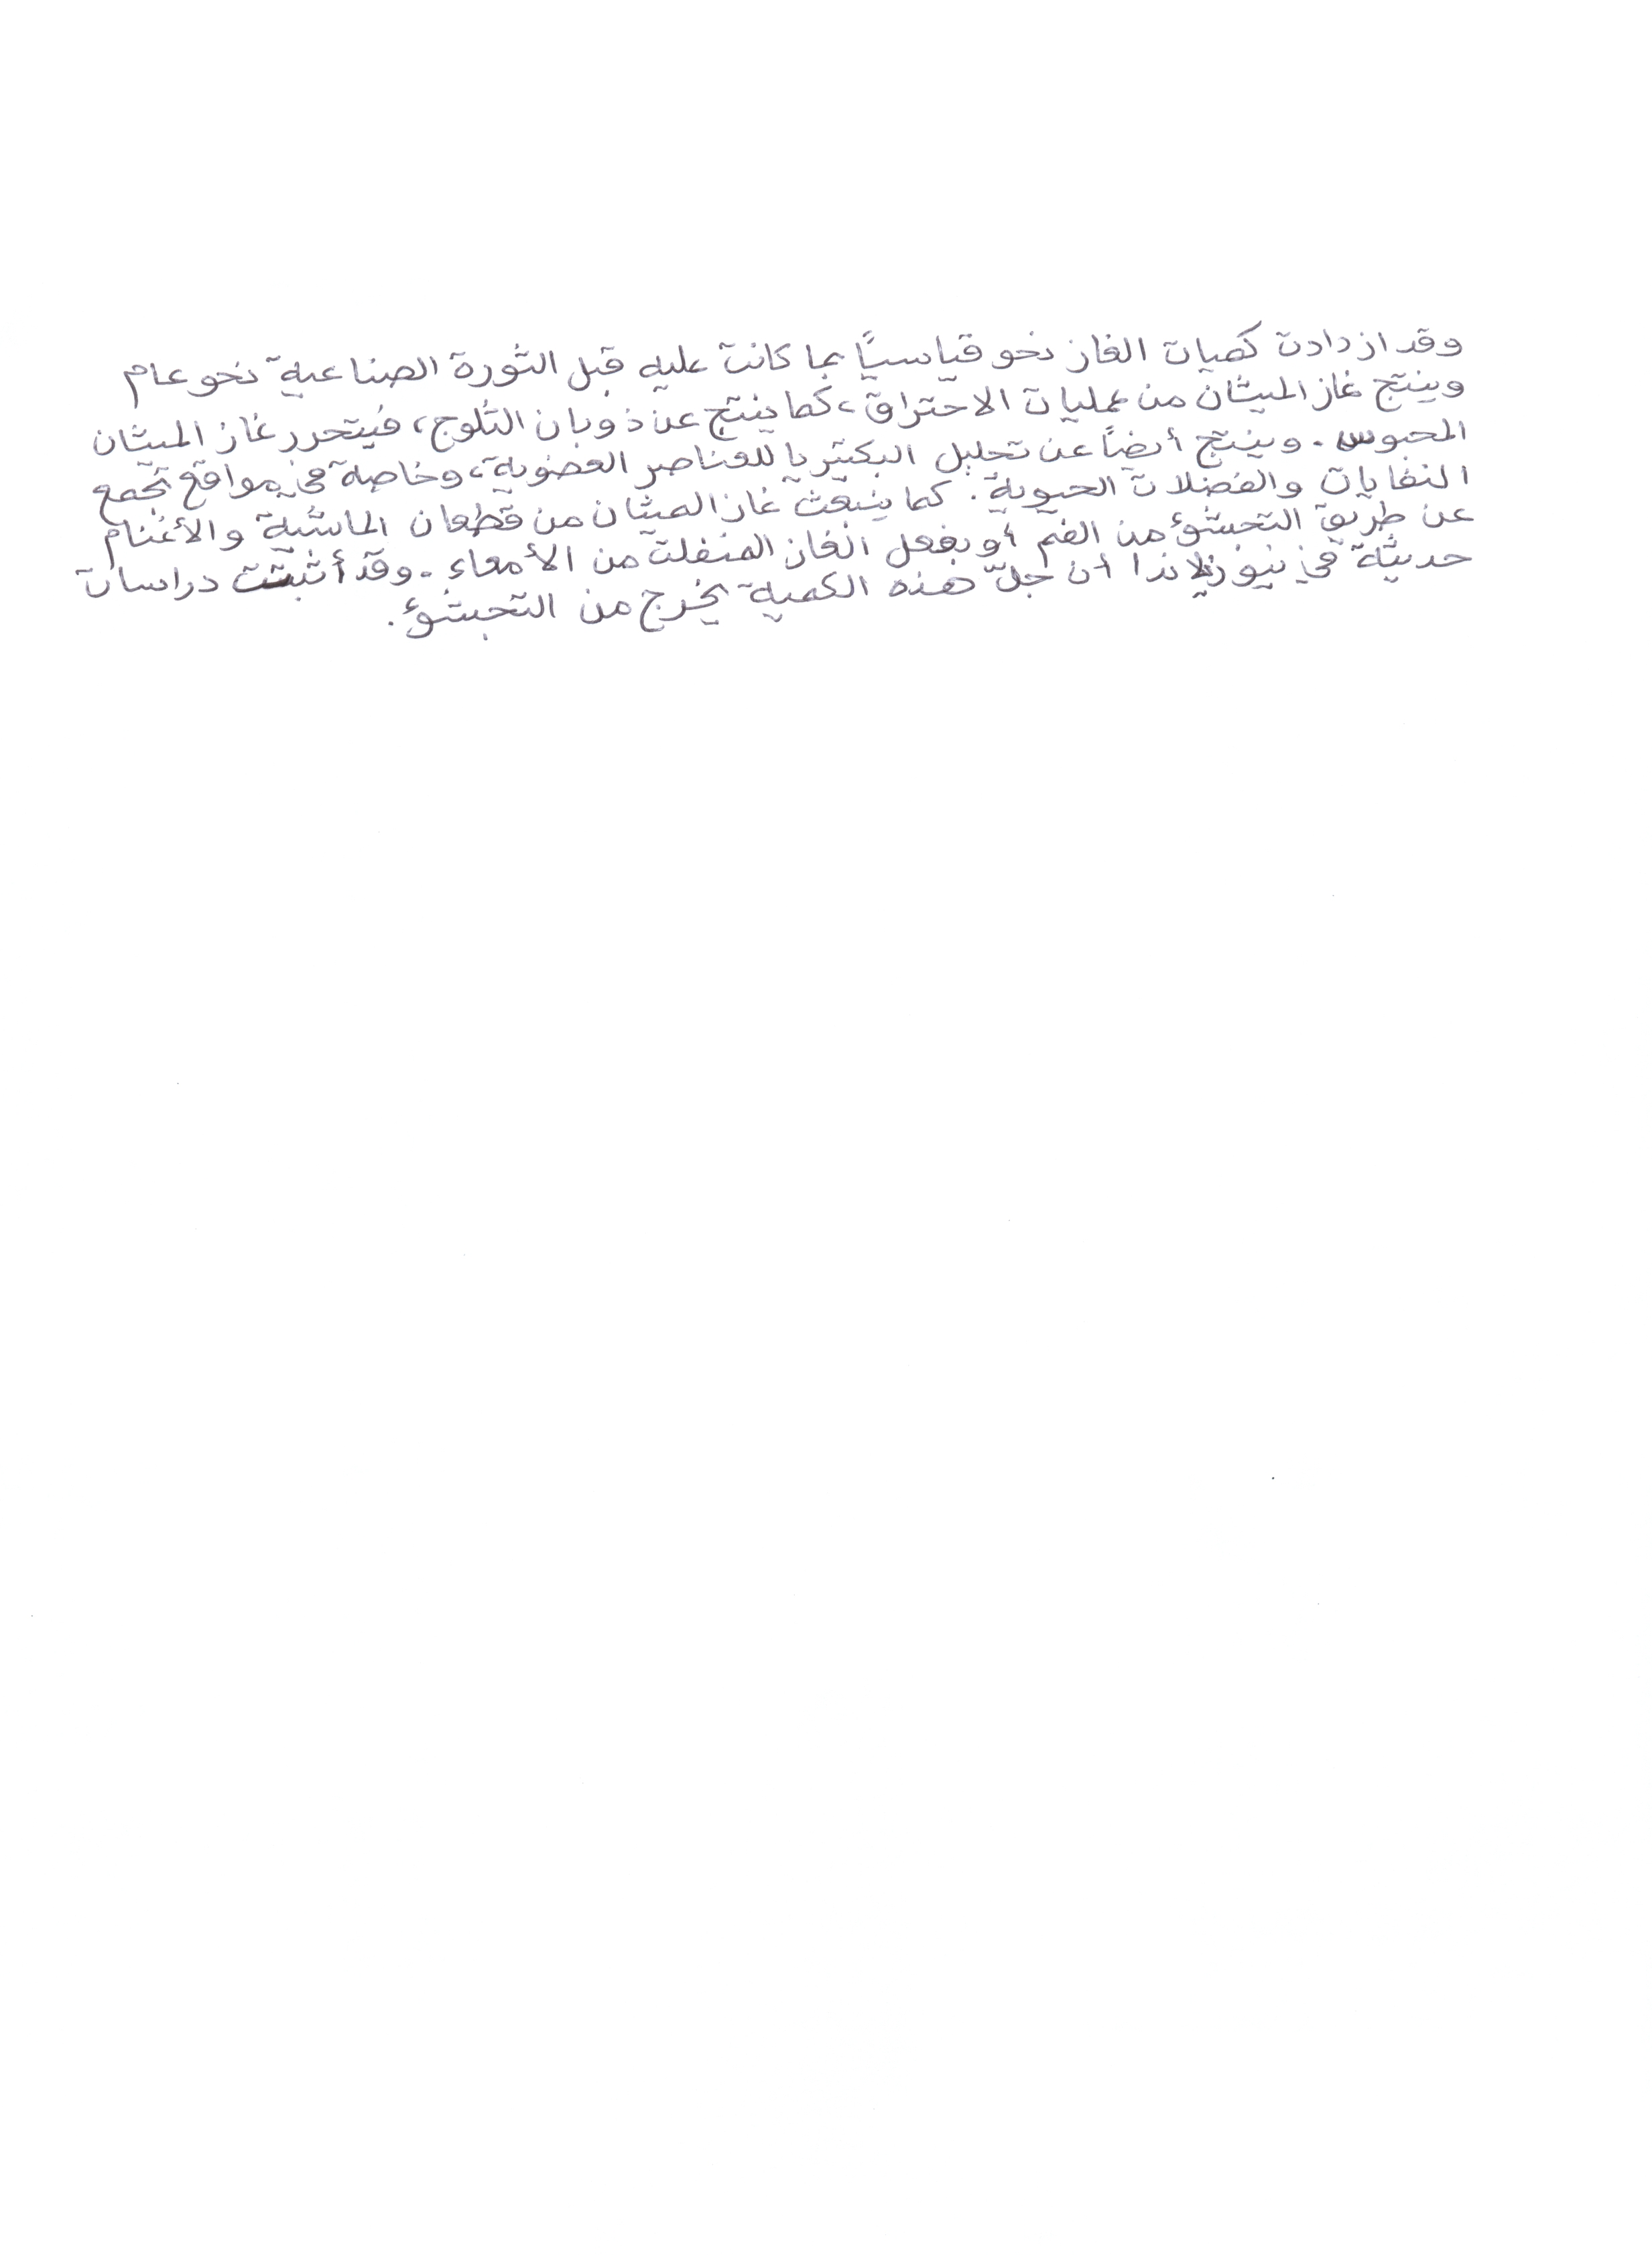 وقد ازدادت كميات الغاز نحو قياسيًا بما كانت عليه قبل الثورة الصناعية نحو عام
وينتج غاز الميثان من عمليات الاحتراق، كما ينتج عن ذوبان الثلوج، فيتحرر غاز الميثان
المحبوس. وينتج أيضاً عن تحليل البكتيريا للعناصر العضوية، وخاصة في مواقع تجمع
النفايات والفضلات الحيوية. كما ينبعث غاز الميثان من قطعان الماشية والأغنام
عن طريق التجشؤ من الفم أو بفعل الغاز المنفلت من الأمعاء. وقد أثبتت دراسات
حديثة في نيوزيلاندا أن جلّ هذه الكمية يخرج من التجشؤ.